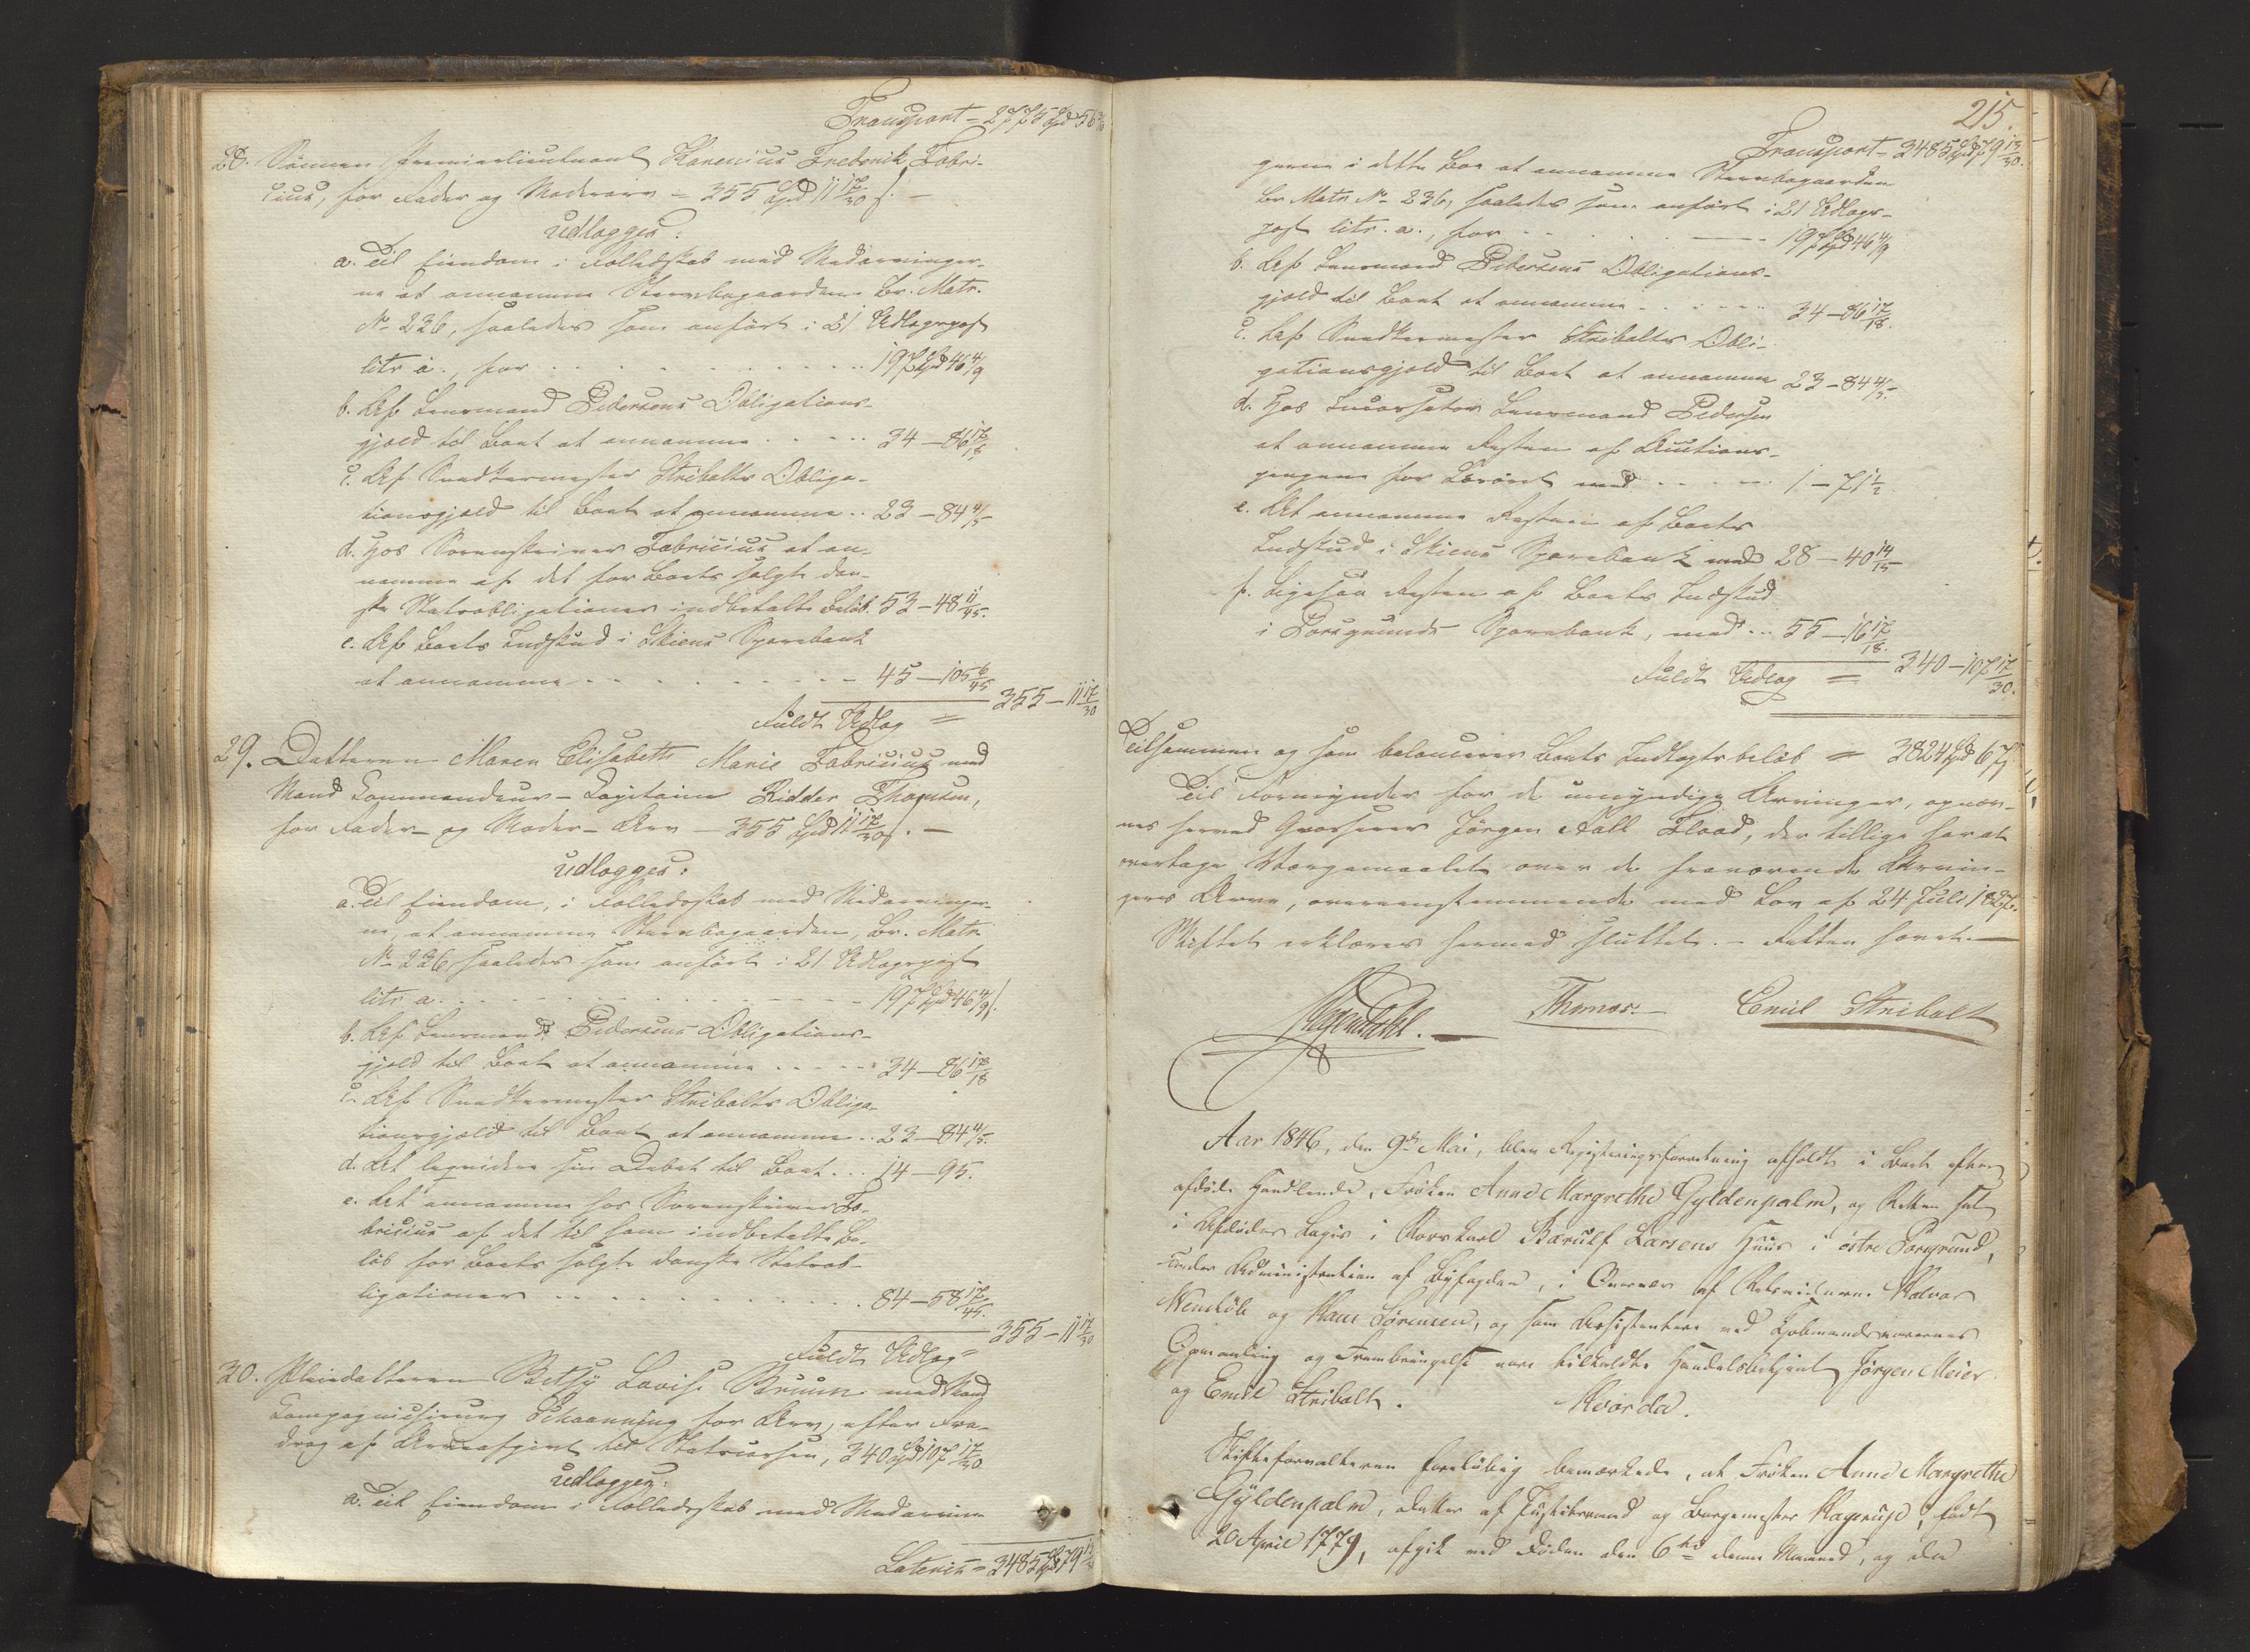 Transport = 2775 Spd 56
28. Sönnen Premierlieutnant Severin Frederik Fabri-
cius, for Fader og Moderarv = 355 Spd 11 17/30 s. –
udlægges:
a. Til Eiendom i Fælledskab med Medarvinger-
ne at annamme Stervbogaarden Br. Matr.
No 236, saaledes som anfört i 21 Udlægspost
litr a., for . . . . . . . . 197 Spd 46 4/9
b. Af Lensmand Pedersens Obligations-
gjæld til Boet at annamme . . . . . 34 – 86 17/18
c. Af Snedkermester Stribolts Obliga-
tionsgjæld til Boet at annamme . . 23 – 84 4/5
d. Hos Sorenskriver Fabricius at an-
namme af det for Boets solgte dan-
ske Statsobligationer indbetalte Belöb. 53 – 48 11/45.
e. Af Boets Indskud i Skiens Sparebank
at annamme . . . . . . . . 45 – 105 6/45
Fuldt Udlæg = 355 – 11 17/30
29. Datteren Maren Elisabeth Marie Fabricius med
Mand Commandeur-Capitaine Ridder Thomsen,
for Fader- og Moder-Arv – 355 Spd 11 17/30 s. –
udlægges:
a. Til Eiendom, i Fælledsskab med Medarvinger-
ne, at annamme Stervbogaarden, Br. Matr.
No 236 saaledes som anfört i 21 Udlægspost
litr a. . . . . . . . . . 197 Spd 46 4/9 s.
b. Af Lensmand Pedersens Obligations-
gjæld til Boet at annamme . . . . . 34 – 86 17/18
c. Af Snedkermester Stribolts Obliga-
tionsgjæld til Boet at annamme . . 23 – 84 4/5.
d. At liqvidere sin Debet til Boet . . . 14 – 95.
e. At annamme hos Sorenskriver Fa-
bricius af det til ham indbetalte Be-
löb for Boets solgte danske Statsob-
ligationer . . . . . . . . 84 – 58 17/45.
Fuldt Udlæg = 355 – 11 17/30
30. Pleiedatteren Betsy Lovise Bruun med Mand
Compagniechirurg Schaanning for Arv, efter Fra-
drag af Arveafgivt til Statscassen, 340 Spd 107 17/30
udlægges:
a. Til Eiendom i Fælledsskab med Medarvin-
Lateris = 3485 Spd 79 13/30
215.
Transport = 3485 Spd 79 13/30.
gerne i dette Boe at annamme Stervbogaarden
Br. Matr. No 236, saaledes som anfört i 21 Udlægs-
post litr. a., for . . . . . 197 Spd 46 4/9
b. Af Lensmand Pedersens Obligations-
gjæld til Boet at annamme . . . . . 34 – 86 17/18.
c. Af Snedkermester Stribolts Obli-
gationsgjæld til Boet at annamme 23 – 84 4/5.
d. Hos Incassator Lensmand Pedersen
at annamme Resten af Auctions-
pengene for Lösöret med . . . . 1 – 71 1/2.
e. At annamme Resten af Boets
Indskud i Skiens Sparebank med 28 – 40 14/15
f. Ligesaa Resten af Boets Indskud
i Porsgrunds Sparebank, med . . . 55 – 16 17/18.
Fuldt Udlæg = 340 – 107 17/30.
Tilsammen og som balancerer Boets Indtægtsbelöb = 3824 Spd 67 s.
Til Formynder for de umyndige Arvinger, opnæv-
nes herved Grosserer Jörgen Fall Flood, der tillige har at
overtage Værgemaalet over de fraværende Arvin-
gers Arve, overeensstemmende med Lov af 24 Juli 1827.
Skiftet erklæres hermed sluttet. – Retten hævet. –
Thomas. – Emil Stribolt
Aar 1846, den 9de Mai, blev Registreringsforretning afholdt i Boet efter
afdöde Handlende, Fröken Anne Margrethe Gyldenpalm, og Retten sat
i Afdödes Logis i Rorskarl Barulf Larsens Huus i östre Porsgrund,
under Administration af Byfogden, i Overvær af Retsvidnerne Halvor
og Hans Sörensen, og som Assistentere ved Kjöbmandsvarernes
Opmaaling og Frembringelse vare tilkaldte Handelsbetjent Jörgen Meier
og Emil Stribolt. Hvorda.
Skifteforvalteren forelöbig bemærkede, at Fröken Anne Margrethe
Gyldenpalm, Datter af Justitsraad og Borgemester Hagerup, födt
20 April 1779, afgik ved Döden den 6te denne Maaned, og da